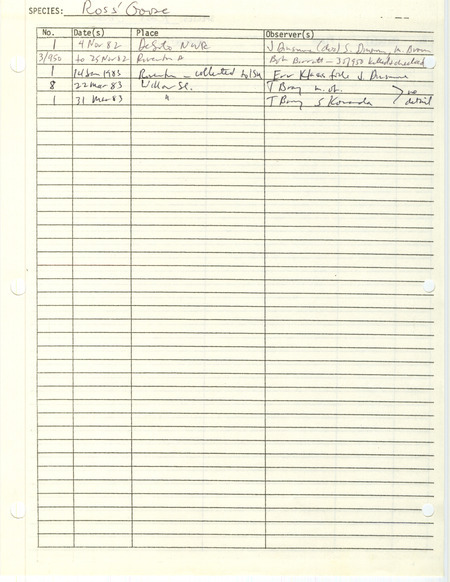 SPECIES: Ross' Goose
No. Date(s) Place Observer(s)
1 4 Nov 82 DeSoto NWR J Dinsmore S. Dinsmore
3/950 to 25 Nov 82 Riverton A Bob Barratt - 3/950 checked
1 14 Jan 1983 Riverton - collected Erv Klaas J Dinsmore
8 22 Mar 83 Willow Sl. T Bray
1 31 Mar 83 " T Bray no detail